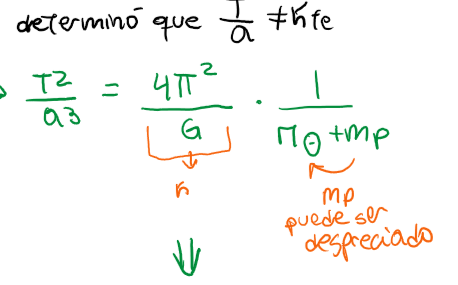 determinó que T/a ≠ kte
T2/a3 = 4π²/G · 1/(M⊙ + mp)
k
mp
puede ser
despreciado